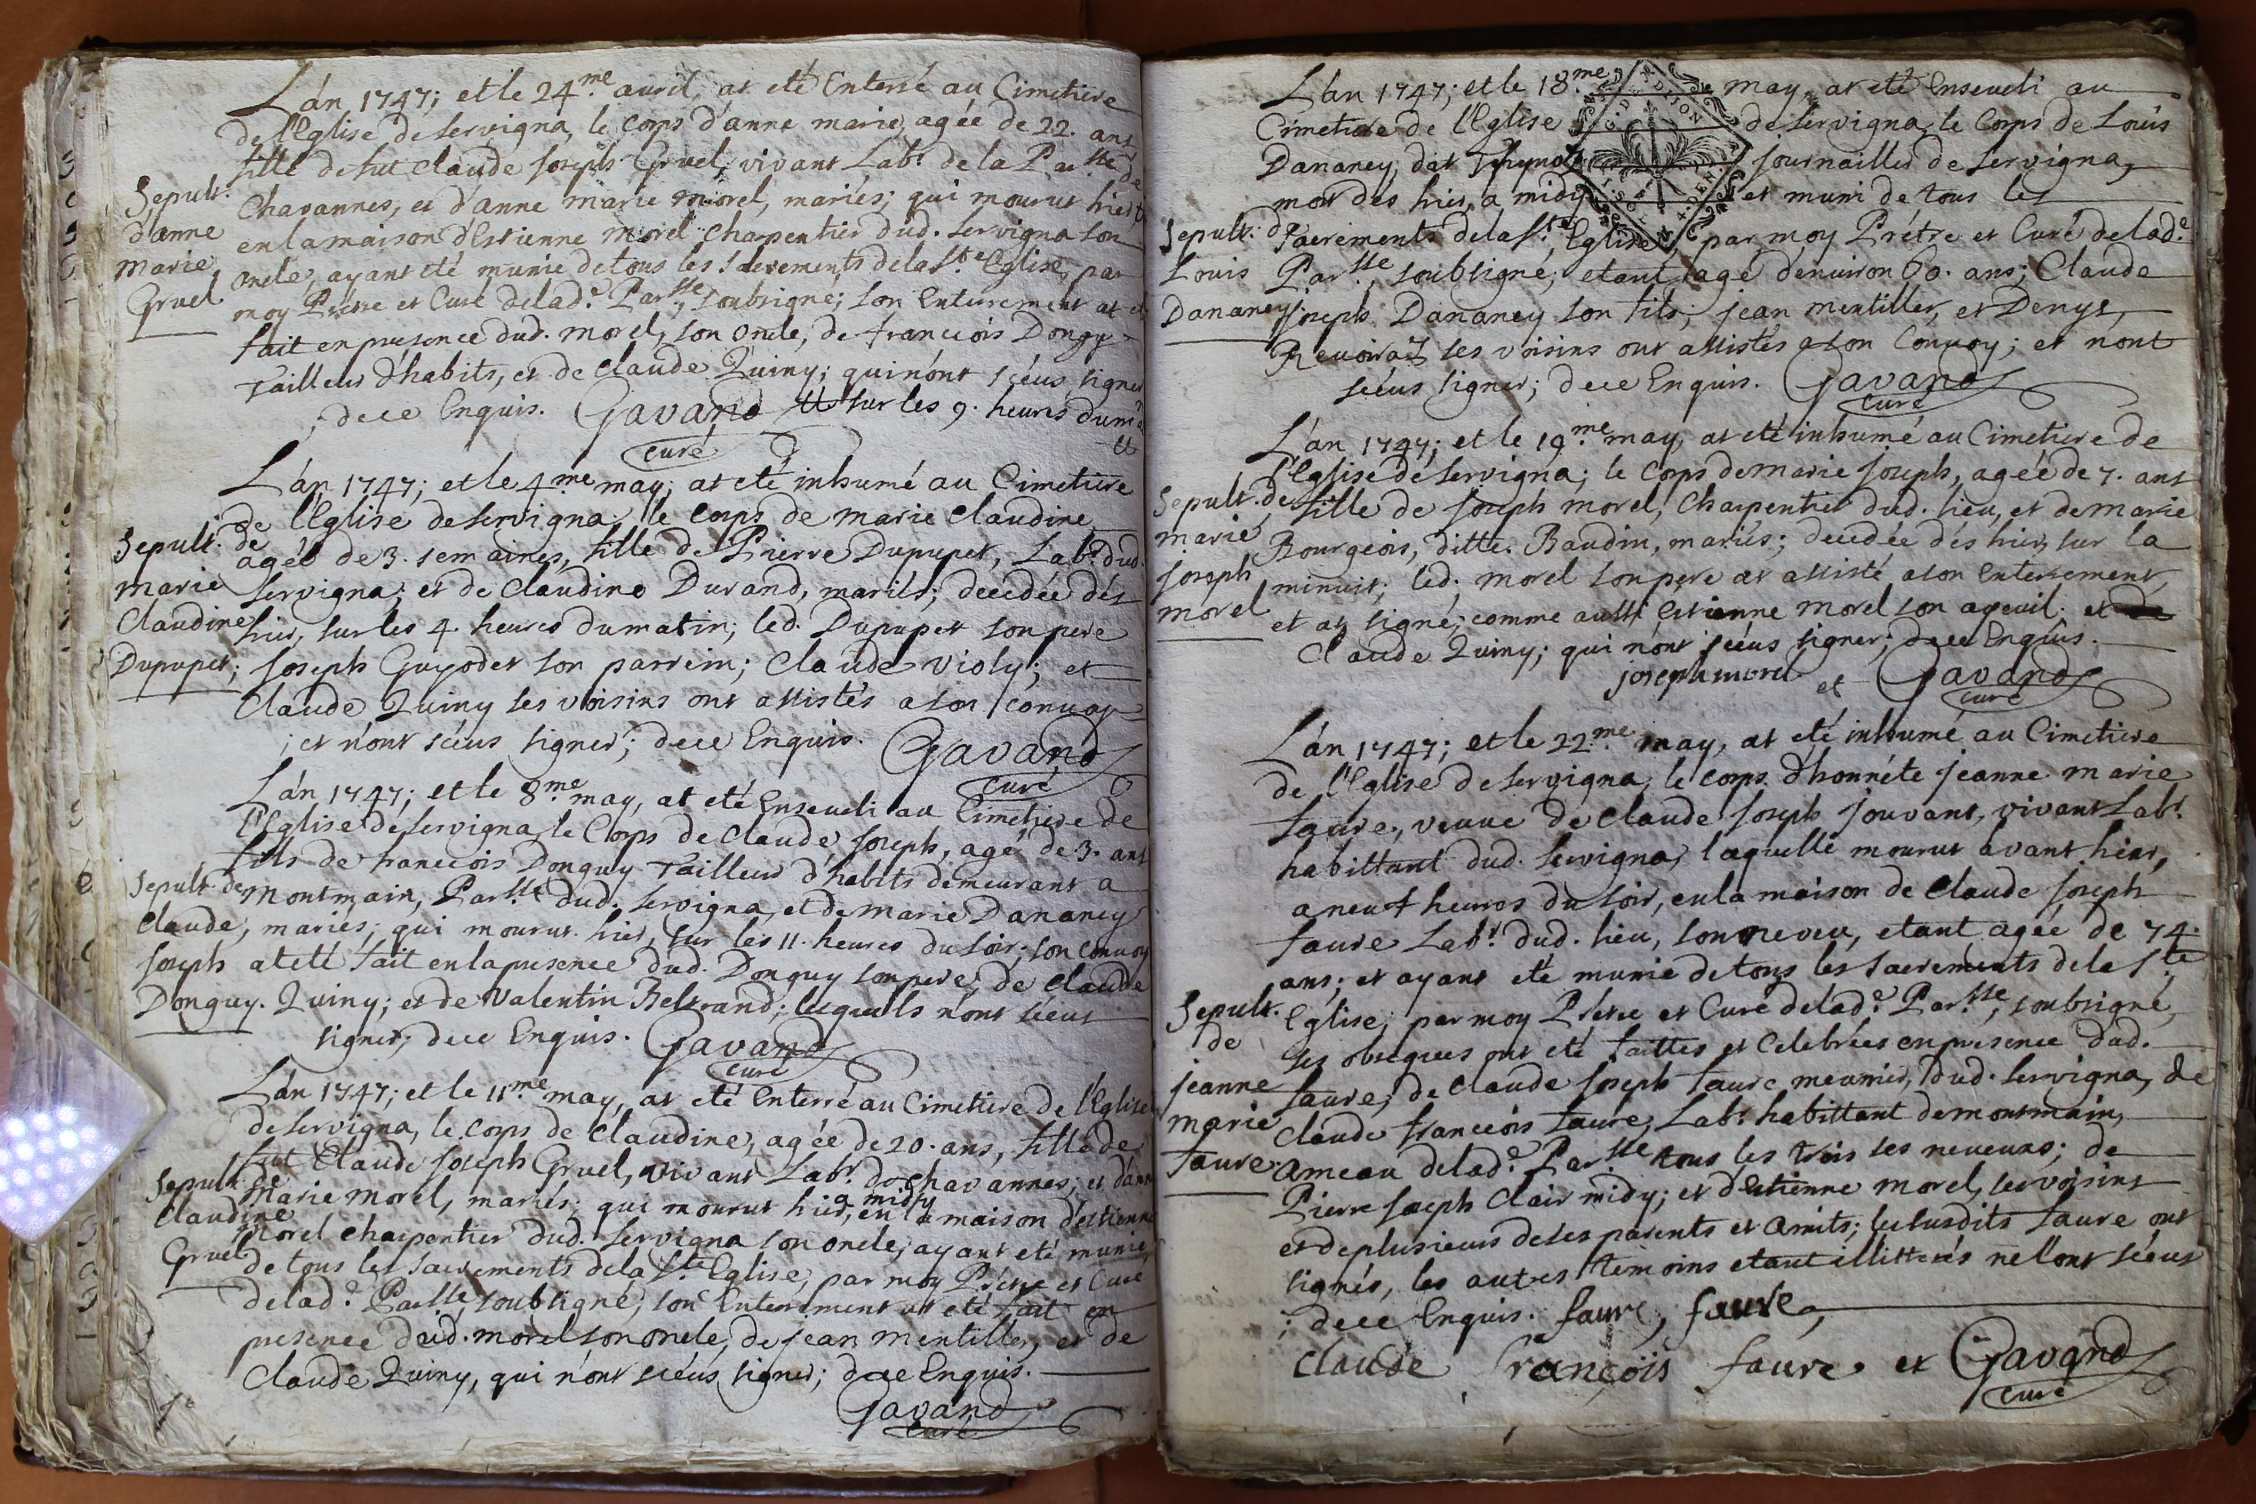 L'án 1747; et le 24.me auril, at eté Enterré au Cimetiere
de l'Eglise de servigna, le corps d'anne marie, agée de 22. ans
fille de fut claude joseph Gruel, vivant Lab.r de la Par.sse de
Chavannes, et d'anne marie morel, mariés; qui mourut hier,
en la maison d'Estienne morel charpentier dud. servigna son
oncle, ayant eté munie de tous les sacrements de la s.te Eglise, par
moy Prétre et Curé de lad.e Par.sse, soubsigné; son Enterrement at eté
fait en présence dud. morel, son oncle, de francçois Donguy
Tailleur d'habits, et de Claude Quiny; qui n'ónt scéus signer
; de ce Enquis. Gavand sur les 9. heures du mat
curé
Sepult.
d'anne
marie
Gruel
L'án 1747; et le 4.me may; at eté inhumé au Cimetiere
de l'Eglise de servigna, le corps de marie claudine
agée de 3. semaines, fille de Pierre Dupupet, Lab.r dud.
servigna; et de Claudine Durand, mariés; decedée dés
hier, sur les 4. heures du matin; led. Dupupet son pere
joseph Guyodet son parrein; Claude violy; et
Claude Quiny ses voisins ont assistés a son convoy
; et n'ónt scéus signer; de ce Enquis. Gavand
curé
Sepult. de
marie
Claudine
Dupupet;
L'án 1747; et le 8.me may, at eté Enseveli au Cimetiere de
l'Eglise de servigna, le Corps de claude joseph, agé de 3. ans
fils de francçois Donguy Tailleur d'habits demeurant a
montmain, Par.sse dud. servigna, et de marie Dananey
mariés; qui mourut hier, sur les 11. heures du soir; son convoy
at eté fait en la presence dud. Donguy son pere; de Claude
Quiny; et de Valentin Beltrand; lesquels n'ónt scéus
signer; de ce Enquis. Gavand
curé
Sepult. de
Claude
joseph
Donguy.
L'án 1747; et le 11.me may, at eté Enterré au Cimetiere de l'Eglise
de servigna, le corps de Claudine, agée de 20. ans, fille de
fut Claude joseph Gruel, vivant Lab.r de chavannes; et d'anne
marie morel, mariés; qui mourut hier, a midy en la maison d'estienne
morel charpentier dud. servigna son oncle; ayant eté munie
de tous les sacrements de la s.te Eglise, par moy Prétre et Curé
de lad.e Par.sse soubsigné; son Enterrement at eté fait en
presence dud. morel son oncle, de jean mentiller, et de
Claude Quiny, qui n'ónt scéus signer; de ce Enquis.
Gavand
curé
Sepult. de
Claudine
Gruel
L'án 1747; et le 18.me may, at eté Enseveli au
Cimetiere de l'Eglise de servigna, le Corps de Loüis
Dananey, dat journallier de servigna,
mort dés hier, a midy et muni de tous les
sacrements de la s.te Eglise, par moy Prétre et Curé de lad.e
Par.sse, soubsigné; etant agé d'environ 60. ans; Claude
joseph Dananey son fils; jean mentiller, et Denys
Revoirat ses voisins ont assistés a son Convoy; et n'ont
scéus signer; de ce Enquis. Gavand
curé
Sepult. de
Louis
Dananey
L'án 1747; et le 19.me may, at eté inhumé au Cimetiere de
l'Eglise de servigna; le corps de marie joseph, agée de 7. ans
fille de joseph morel, Charpentier dud. lieu, et de marie
Bourgeois, ditte Baudin, mariés; decedée dés hier, sur la
minuit; led. morel son pere at assisté a son Enterrement,
et at signé; comme aussi Estienne morel son ayeuil. et
Claude Quiny; qui n'ónt scéus signer; de ce Enquis.
joseph morel et Gavand
curé
Sepult. de
marie
joseph
morel
L'án 1747; et le 22.me may, at eté inhumé au Cimetiere
de l'Eglise de servigna, le corps d'honnéte jeanne marie
faure, veuve de claude joseph jouvant, vivant Lab.r
habittant dud. servigna, laquelle mourut avant hier,
a neuf heures du soir, en la maison de Claude joseph
faure Lab.r dud. lieu, son neveu, etant agée de 74.
ans; et ayant eté munie de tous les sacrements de la s.te
Eglise, par moy Prétre et Curé de lad.e Par.sse, soubsigné,
ses obseques ont eté faittes et Celebrées en presence dud.
faure, de claude joseph faure meunier, dud. servigna, de
claude francçois faure, Lab.r habittant de montmain,
ameau de lad.e Par.sse tous les trois ses neveux; de
Pierre joseph Clair midy; et d'Estienne morel, ses voisins
et de plusieurs de ses parents et amits; les susdits faure ont
signés, les autres témoins etant illitterés ne l'ont scéus
; de ce Enquis. faure, faure,
claude françois faure et Gavand
curé
Sepult.
de
jeanne
marie
faure